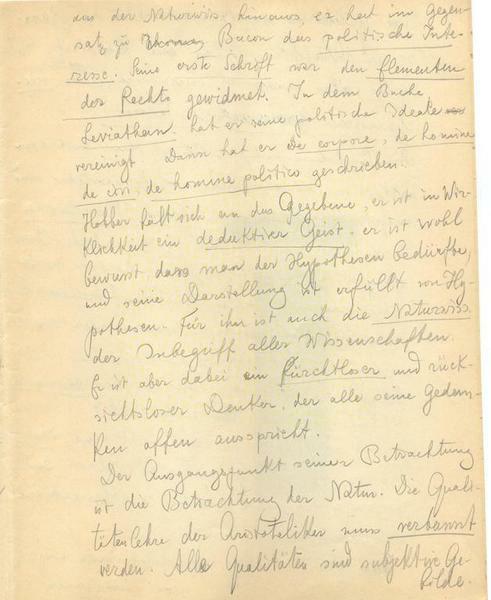 aus der Naturwiss. hinaus, er hat im Gegen-
satz zu Bacon das politische Inte-
resse. Seine erste Schrift war den Elementen
des Rechts gewidmet. In dem Buche
Leviathan hat er seine politische Ideale
vereinigt. Dann hat er de corpore, de homine
de cive, de homine politico geschrieben.
Hobbes hält sich an das Gegebene, er ist in Wir-
klichkeit ein deduktiver Geist. er ist wohl
bewusst, dass man der Hypothesen bedürfte,
und seine Darstellung ist erfüllt von Hy-
pothesen. Für ihn ist auch die Naturwiss.
der Inbegriff aller Wissenschaften.
Er ist aber dabei ein furchtloser und rück-
sichtsloser Denker, der alle seine Gedan-
ken offen ausspricht.
Der Ausgangspunkt seiner Betrachtung
ist die Betrachtung der Natur. Die Quali-
tätenlehre der Aristoteliker muss verbannt
werden. Alle Qualitäten sind subjektive Ge-
bilde.